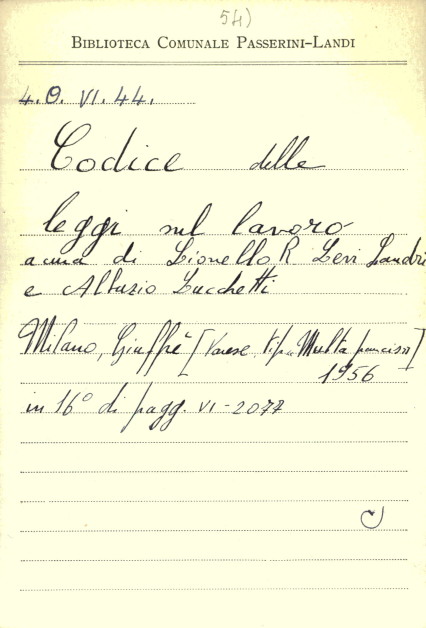 54)
BIBLIOTECA COMUNALE PASSERINI-LANDI
4.O. VI.44.
Codice delle
leggi sul lavoro
a cura di Lionello R Levi Sandri
e Alluzio Lucchetti
Milano, Giuffrè [Varese tip. Multa paucis]
1956
in 16° di pagg. VI-2077